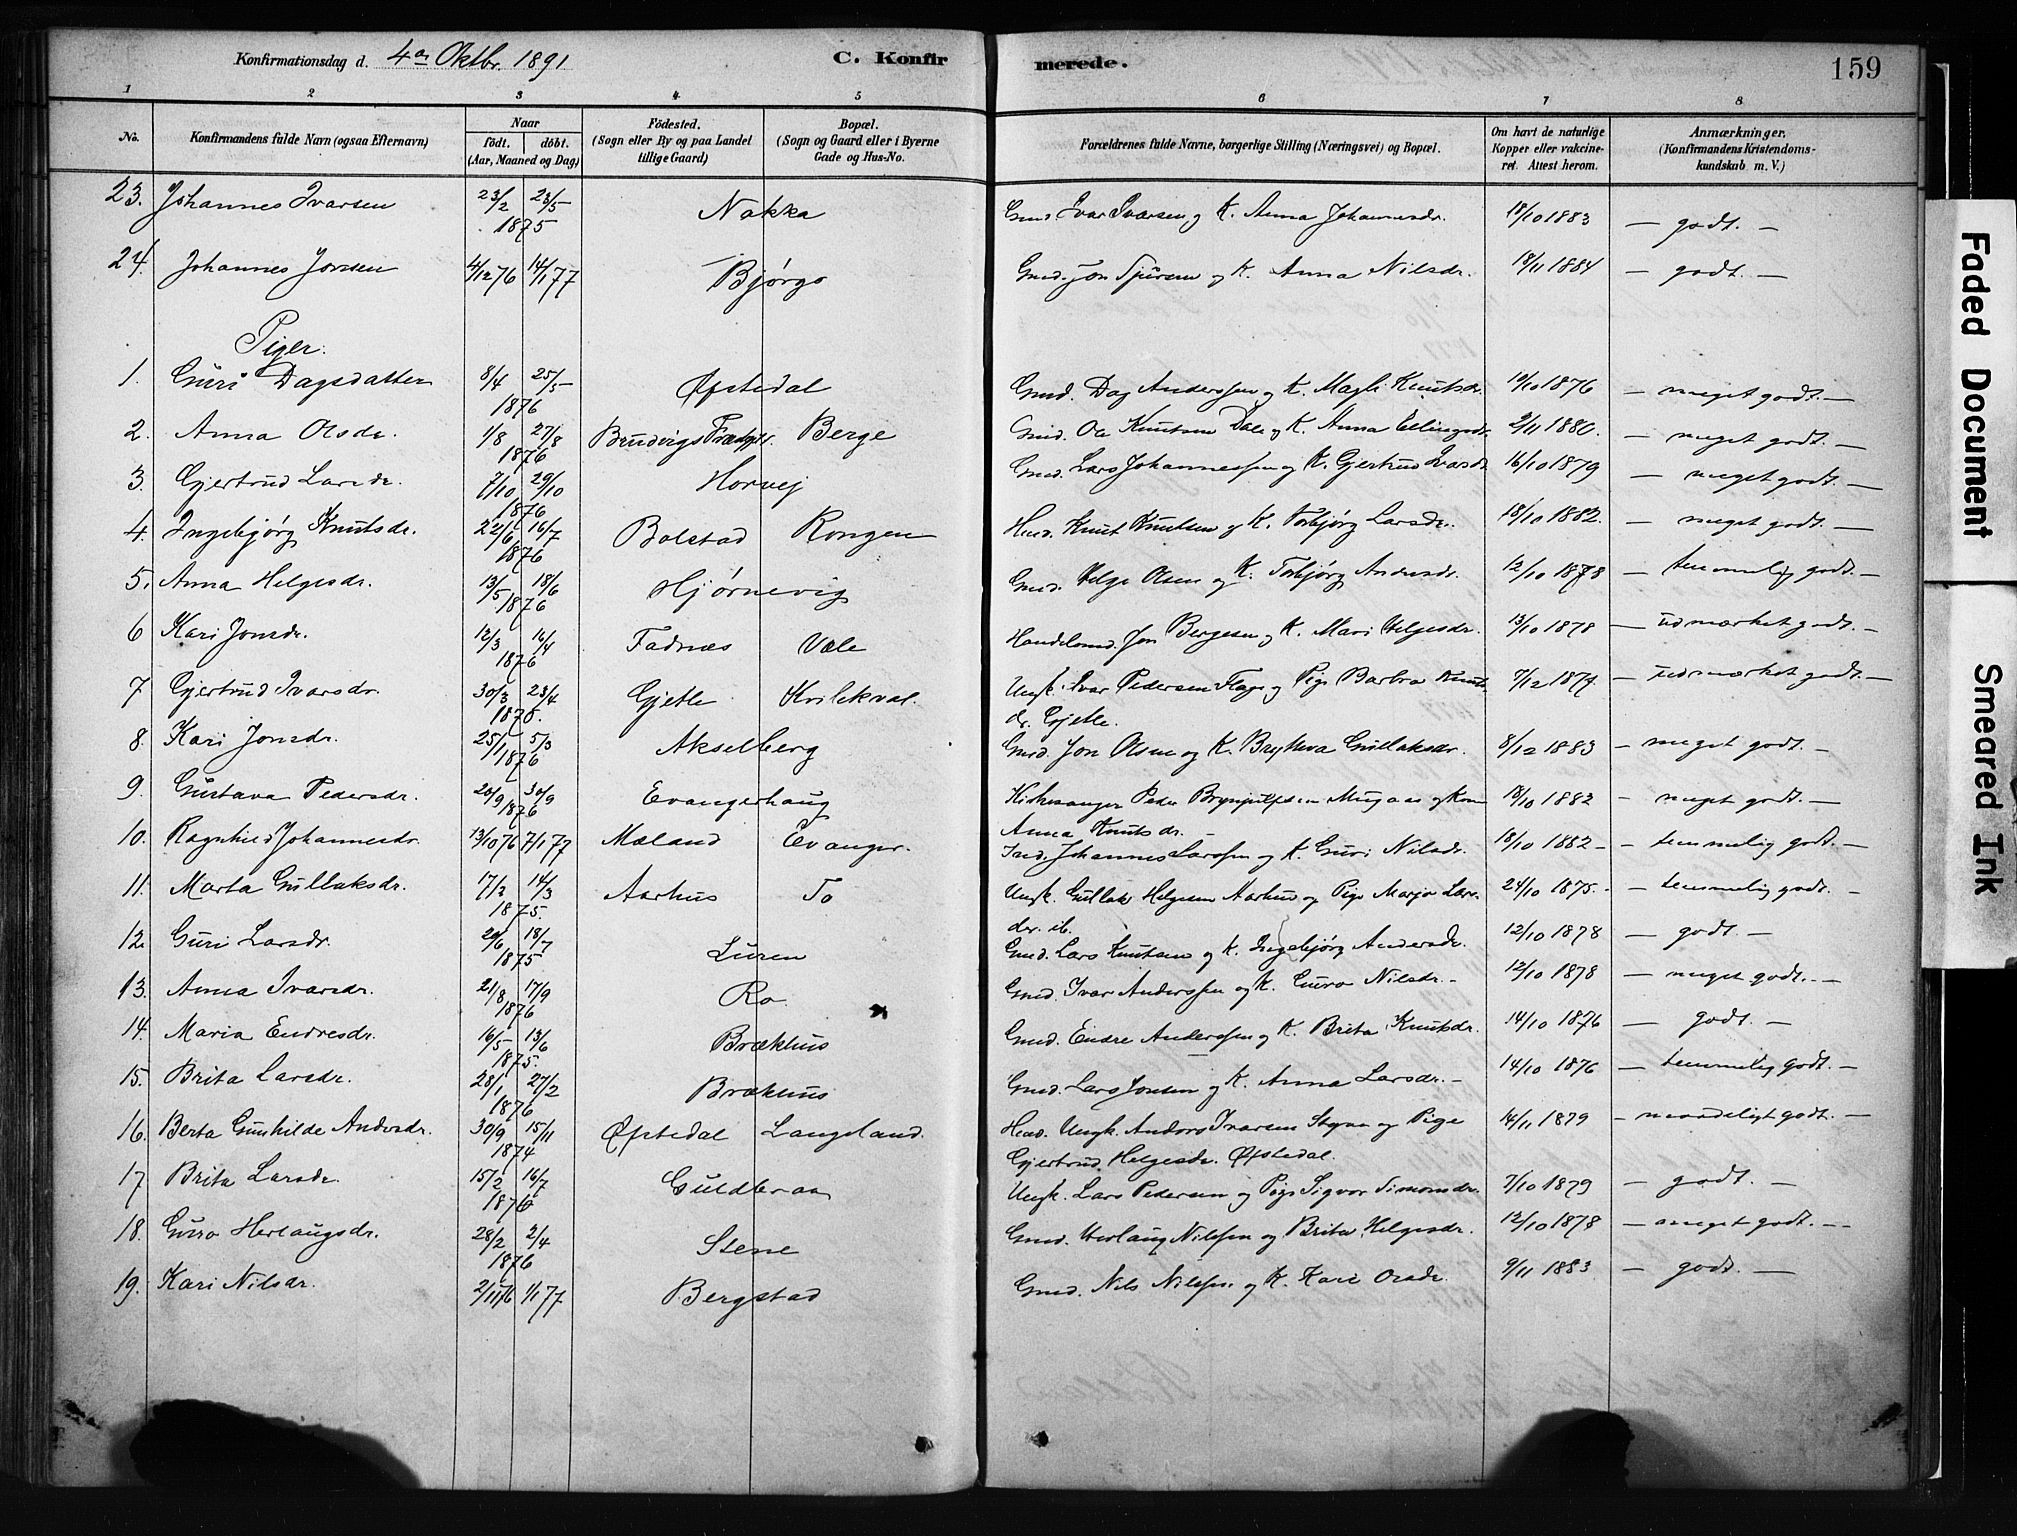 Konfirmationsdag d. 4de Oktbr. 1891 C. Konfirmerede. 159
1 2 3 4 5 6 7 8
No. Konfirmandens fulde Navn (ogsaa Efternavn) Naar født. døbt. (Aar, Maaned og Dag) Fødested. (Sogn eller By og paa Landet tillige Gaard) Bopæl. (Sogn og Gaard eller i Byerne Gade og Hus-No. Forældrenes fulde Navne, borgerlige Stilling (Næringsvei) og Bopæl. Om havt de naturlige Kopper eller vakcineret. Attest herom. Anmærkninger. (Konfirmandens Kristendomskundskab m. V.)
23. Johannes Ivarsen 23/2 23/5 1875 Nakka Gmd. Ivar Ivarsen og K. Anna Johannesdr. 18/10 1883 — godt. —
24. Johannes Jonsen 4/12 76 14/1 77 Bjørgo Gmd. Jon Sjursen og K. Anna Nilsdr. 18/11 1884 — godt. —
Piger.
1. Guri Dagsdatter 8/4 25/5 1876 Øfstedal Gmd. Dag Anderssen og K. Magli Knutsdr. 19/10 1876 — meget godt. —
2. Anna Olsdr. 1/8 27/8 1876 Berge Gmd. Ole Knutsen Dale og K. Anna Ellingsdr. 2/11 1880. — meget godt. —
3. Gjertrud Larsdr. 7/10 29/10 1876 Horvej Gmd. Lars Johannessen og K. Gjertrud Ivarsdr. 16/10 1879 — meget godt. —
4. Ingebjørg Knutsdr. 22/6 16/7 1876 Bolstad Rongen Hmd. Knut Knutsen og K. Torbjørg Larsdr. 18/10 1882. — meget godt. —
5. Anna Helgesdr. 13/5 18/6 1876 Hjørnevig Gmd. Helge Olsen og K. Torbjørg Andersdr. 12/10 1878 — temmelig godt. —
6 Kari Jonsdr. 12/3 16/4 1876 Fadnæs Væle Handelsmd. Jon Bergesen og K. Mari Helgesdr. 13/10 1878 — udmærket godt. —
7 Gjertrud Ivarsdr. 30/3 23/4 1875. Gjetle Kvilekval. Ungk. Ivar Pedersen Flage og Pige Barbra Knuts
dr. Gjetle. 7/12 1877. — udmærket godt. —
8. Kari Jonsdr. 25/1 5/3 1876 Akselberg Gmd. Jon Olsen og K. Brytteva Gullaksdr. 8/12 1883 — meget godt. —
9. Gustava Pedersdr. 20/9 30/9 1876 Evangerhaug Kirkesanger Peder Brynjulfsen Mugaas og Kone
Anna Knutsdr. 18/10 1882 — meget godt. —
10. Ragnhild Johannesdr. 13/10 76 7/1 77 Mæland Evanger. Johannes Larssen og K. Guri Nilsdr. 18/10 1882 — temmelig godt. —
11. Marta Gullaksdr. 17/2 14/3 1875. Aarhus To Ungk. Gullak Helgesen Aarhus og Pige Marja Lars
dr. ib. 24/10 1875. — temmelig godt. —
12. Guri Larsdr. 20/6 18/7 1875 Luren Gmd. Lars Knutsen og K. Ingebjørg Andersdr. 12/10 1878 — godt. —
13. Anna Ivarsdr. 21/8 17/9 1876 Ro Gmd. Ivar Anderssen og K. Guro Nilsdr. 12/10 1878 — meget godt. —
14. Maria Endresdr. 16/5 13/6 1875. Brækhus Gmd. Endre Anderssen og K. Brita Knutsdr. 14/10 1876 — godt. —
15. Brita Larsdr. 28/1 27/2 1876 Brækhus Gmd. Lars Jonsen og K. Anna Larsdr. — 14/10 1876 — temmelig godt. —
16. Berta Gunhilde Andersdr. 30/9 15/11 1874 Øfstedal Langeland. Ungk. Anders Ivarsen Styve og Pige
Gjertrud Helgesdr. Øfstedal. 14/11 1879 — maadeligt godt. —
17 Brita Larsdr. 15/2 16/7 1876 Guldbraa Ungk. Lars Pedersen og Pige Sigvor Simonsdr. 7/10 1879 — godt. —
18. Guro Herlaugsdr. 28/2 2/4 1876 Stene Gmd. Herlaug Nilssen og Brita Helgesdr. 12/10 1878 — meget godt. —
19. Kari Nilsdr. 2/11 76 1/1 77 Bergstad Gmd. Nils Nilssen og K. Kari Olsdr. 9/11 1883. — godt. —
Faded Document
Smeared Ink